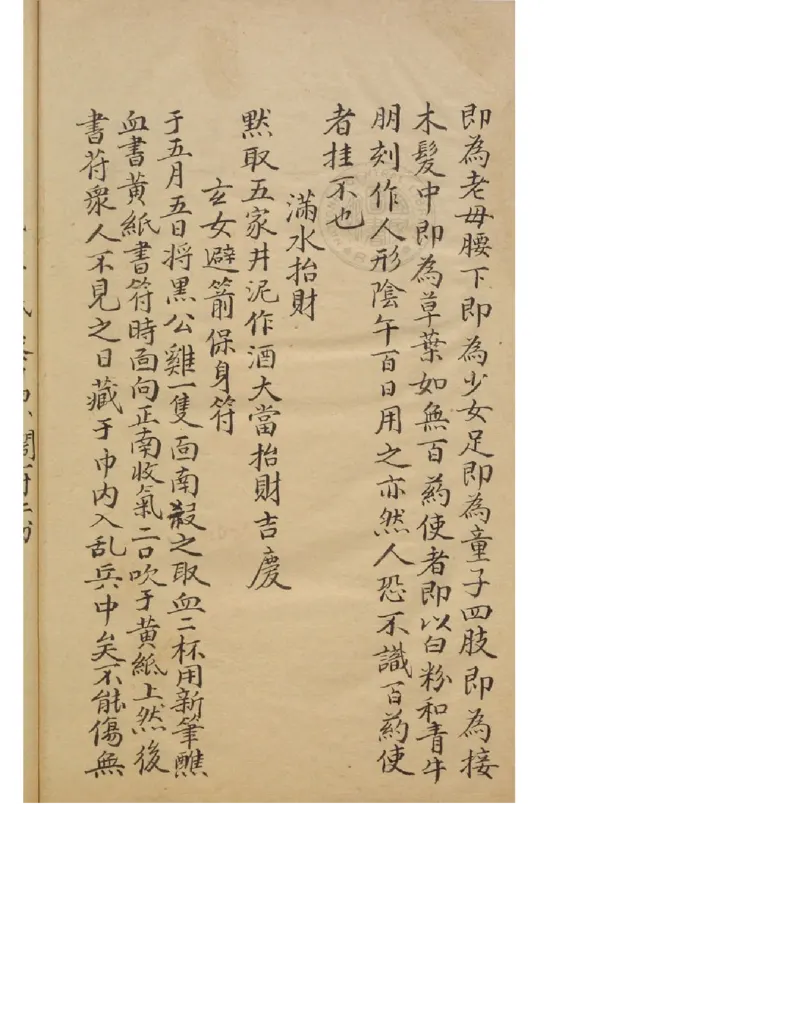 即為老母腰下即為少女足即為童子四肢即為接
木髮中即為草葉如無百藥使者即以白粉和青牛
朋刻作人形陰午百日用之亦然人恐不識百药使
者挂不也
滿水抬財
默取五家井泥作酒大當抬財吉慶
玄女避箭保身符
于五月五日将黑公雞一隻面南殺之取血二杯用新筆蘸
血書黃紙書符時面向正南收氣二口吹于黄紙上然後
書符衆人不見之日藏于巾内入乱兵中矣不能傷無